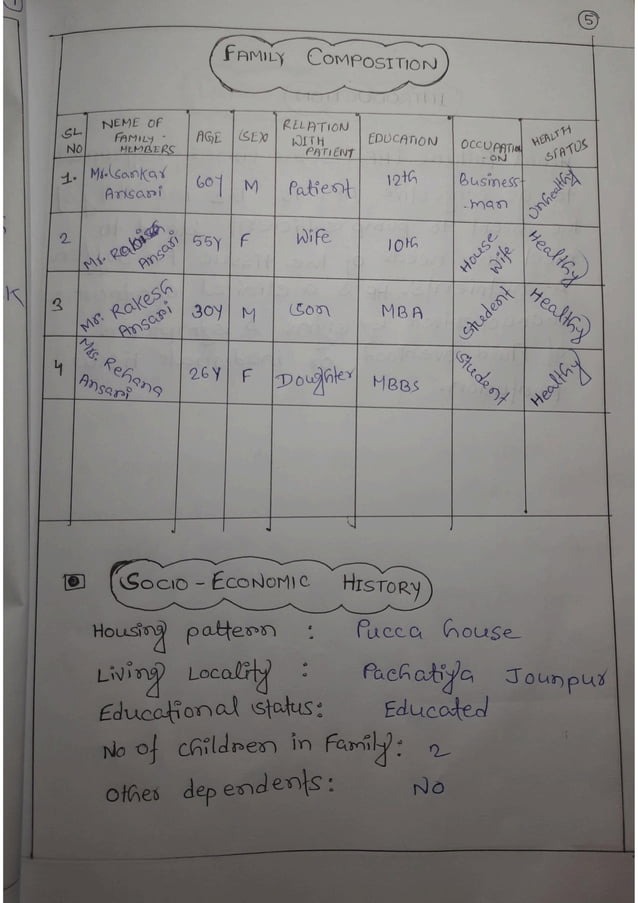 5
FAMILY COMPOSITION
SL NO NEME OF FAMILY MEMBERS AGE SEX RELATION WITH PATIENT EDUCATION OCCUPATI-ON HEALTH STATUS
1. Mr. Sankar Ansari 60Y M Patient 12th Business-man Unhealthy
2 Mr. Ansari 55Y F Wife 10th House Wife Healthy
3 Mr. Rakesh Ansari 30Y M Son MBA Student Healthy
4 Mrs. Rehana Ansari 26Y F Doughter MBBS Student Healthy
SOCIO-ECONOMIC HISTORY
Housing pattern : Pucca house
Living Locality : Pachatiya Jounpur
Educational status: Educated
No of children in Family: 2
Other dependents: NO
K